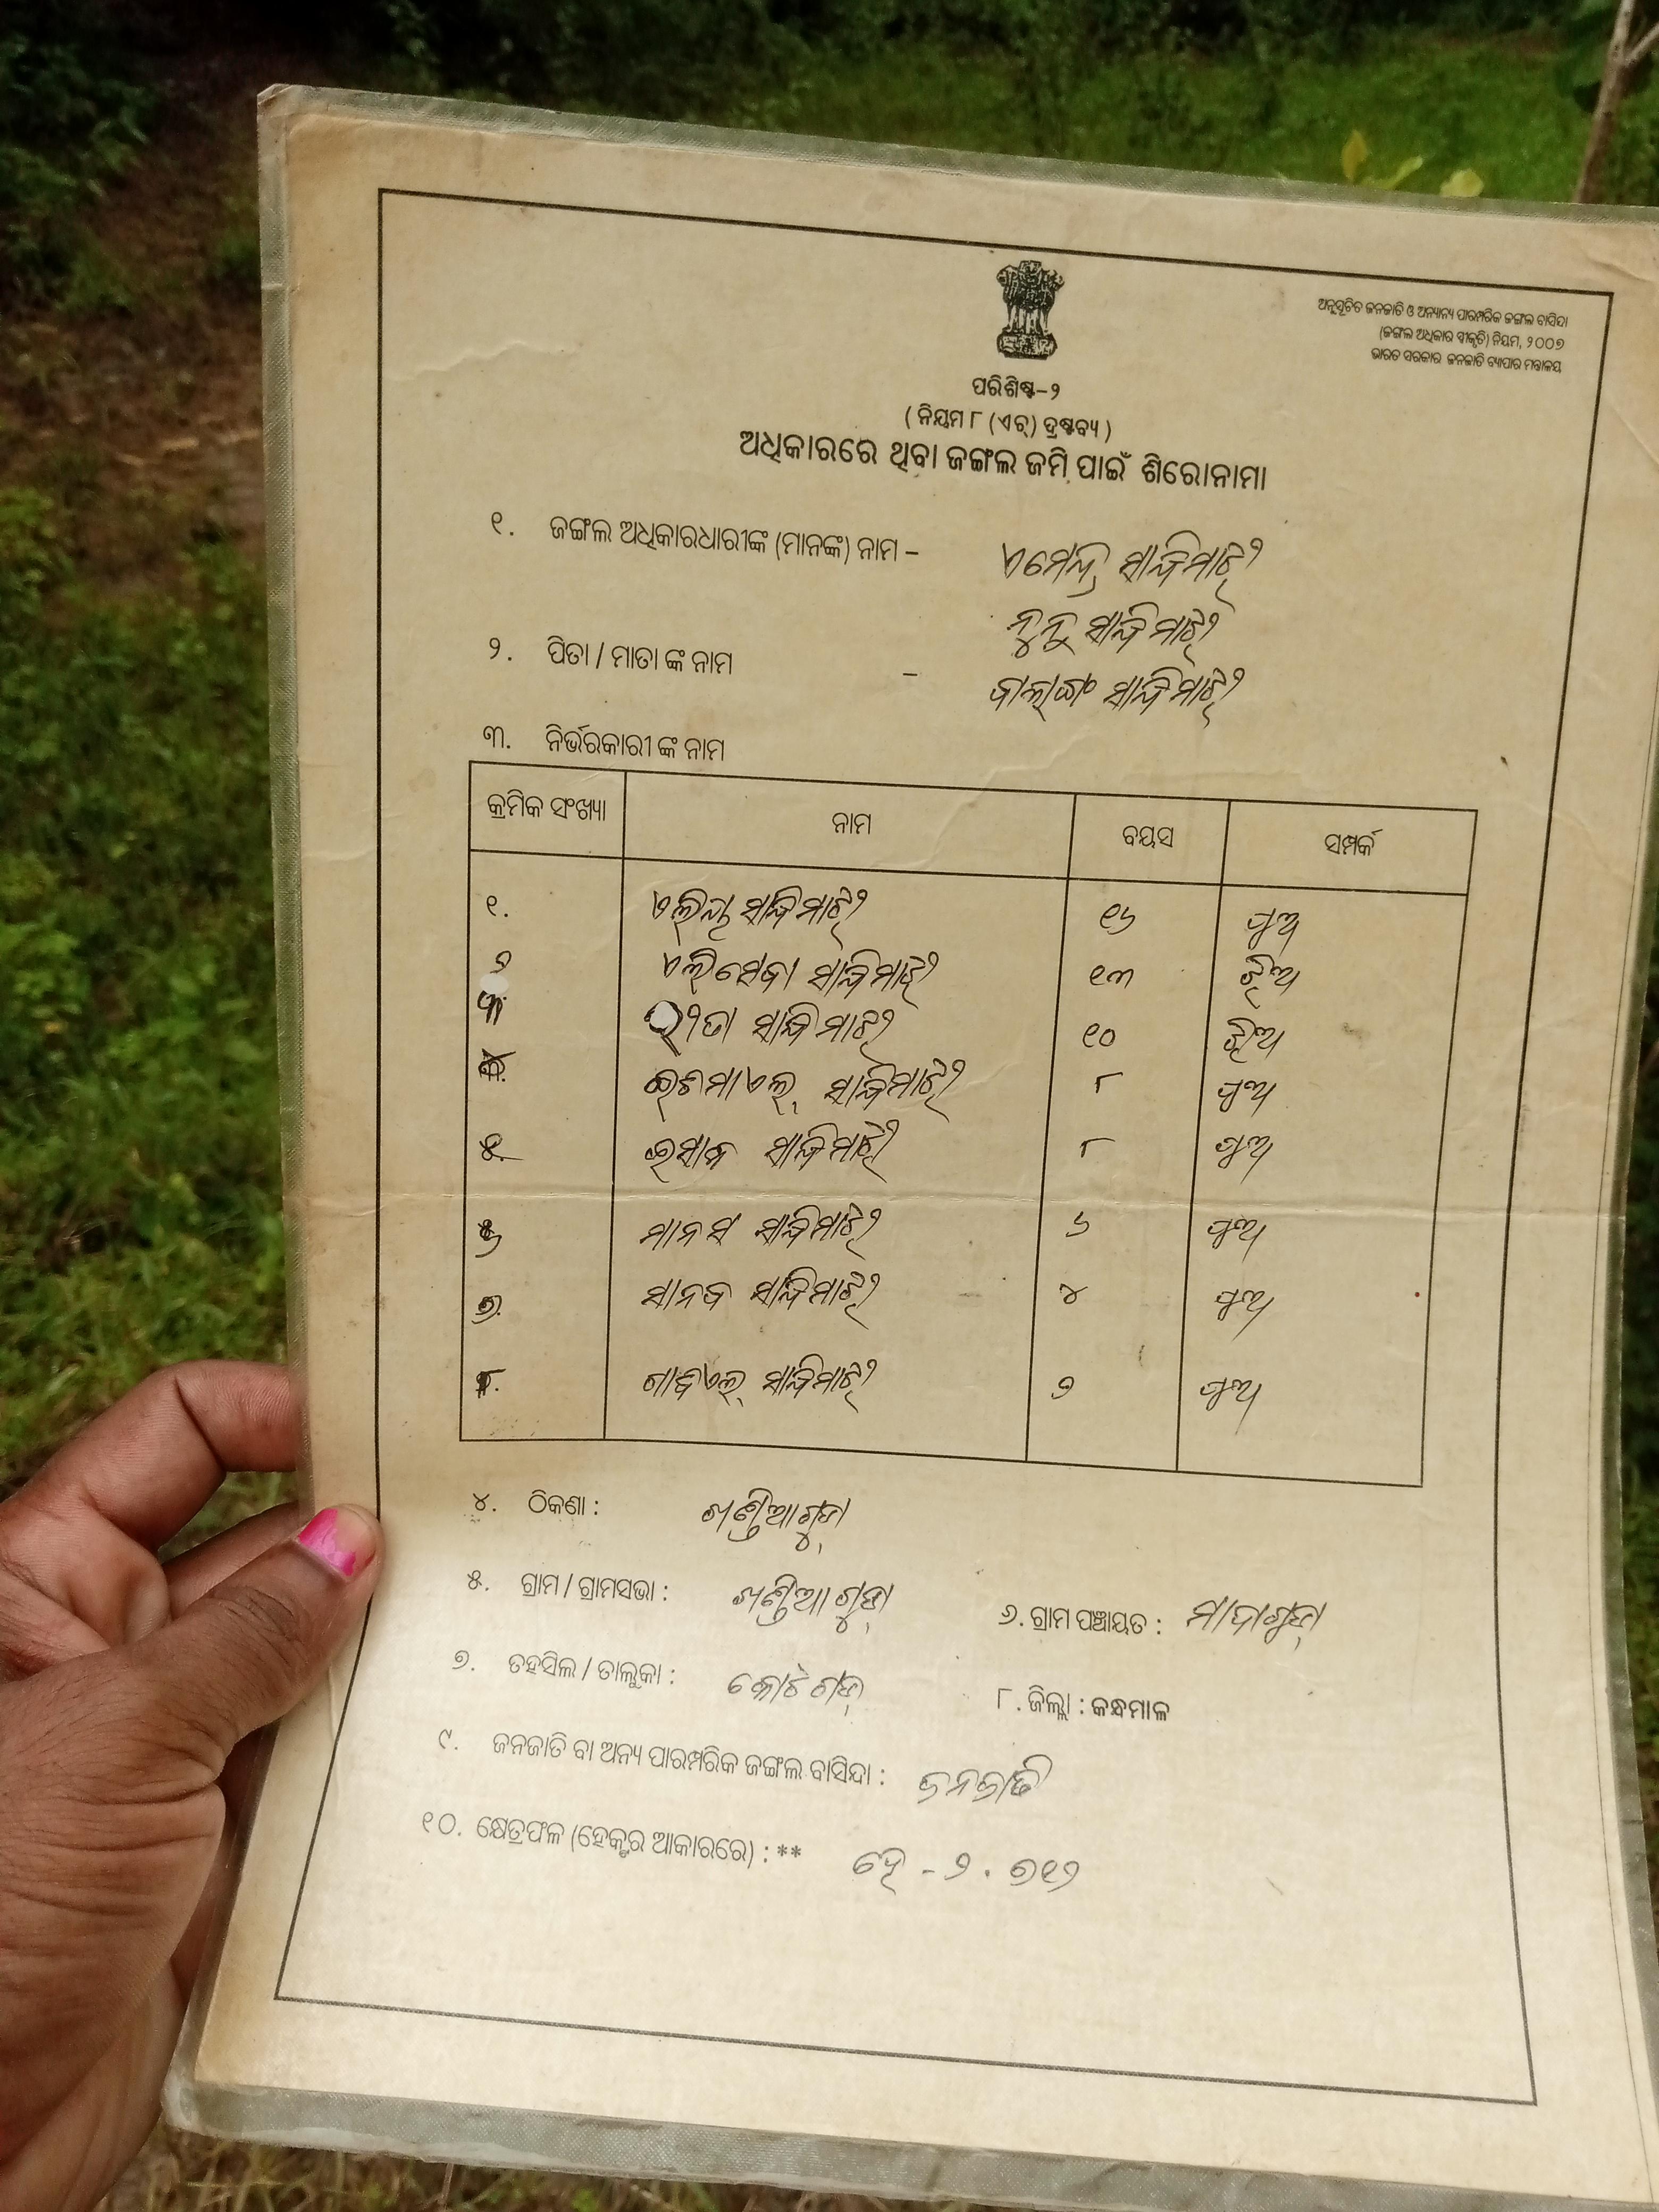 ଅନୁସୂଚିତ ଜନଜାତି ଓ ଅନ୍ୟାନ୍ୟ ପାରମ୍ପରିକ ଜଙ୍ଗଲ ବାସିନ୍ଦା
(ଜଙ୍ଗଲ ଅଧିକାର ସ୍ୱୀକୃତି) ନିୟମ, ୨୦୦୭
ଭାରତ ସରକାର ଜନଜାତି ବ୍ୟାପାର ମନ୍ତ୍ରାଳୟ
ପରିଶିଷ୍ଟ-୨
( ନିୟମ ୮ (ଏଚ୍) ଦ୍ରଷ୍ଟବ୍ୟ )
ଅଧିକାରରେ ଥିବା ଜଙ୍ଗଲ ଜମି ପାଇଁ ଶିରୋନାମା
୧. ଜଙ୍ଗଲ ଅଧିକାରଧାରୀଙ୍କ (ମାନଙ୍କ) ନାମ - ଏମେନ୍ଦ୍ର ସାନ୍ଦିମାଝି
ନୁନୁ ସାନ୍ଦିମାଝି
୨. ପିତା / ମାତା ଙ୍କ ନାମ - ସାନ୍ଦିମାଝି
୩. ନିର୍ଭରକାରୀ ଙ୍କ ନାମ
କ୍ରମିକ ସଂଖ୍ୟା ନାମ ବୟସ ସମ୍ପର୍କ
୧. ସାନ୍ଦିମାଝି ୧୬ ପୁଅ
୨ ଏଲିସେବା ସାନ୍ଦିମାଝି ୧୩ ଝିଅ
୩. ସାନ୍ଦିମାଝି ୧୦ ଝିଅ
୪. ଇଶମାଏଲ୍ ସାନ୍ଦିମାଝି ୮ ପୁଅ
୫. ଇସାକ ସାନ୍ଦିମାଝି ୮ ପୁଅ
୬ ମାନସ ସାନ୍ଦିମାଝି ୬ ପୁଅ
୭. ସାନ୍ଦିମାଝି ୪ ପୁଅ
୮. ସାନ୍ଦିମାଝି ୨ ପୁଅ
୪. ଠିକଣା : ଖଣ୍ଡିଆଗୁଡା
୫. ଗ୍ରାମ / ଗ୍ରାମସଭା : ଖଣ୍ଡିଆଗୁଡା ୬. ଗ୍ରାମ ପଞ୍ଚାୟତ :
୭. ତହସିଲ / ତାଲୁକା : କୋଟଗଡ଼ ୮. ଜିଲ୍ଲା : କନ୍ଧମାଳ
୯. ଜନଜାତି ବା ଅନ୍ୟ ପାରମ୍ପରିକ ଜଙ୍ଗଲ ବାସିନ୍ଦା : ଜନଜାତି
୧୦. କ୍ଷେତ୍ରଫଳ (ହେକ୍ଟର ଆକାରରେ) : ** ହେ - ୨.୭୧୨